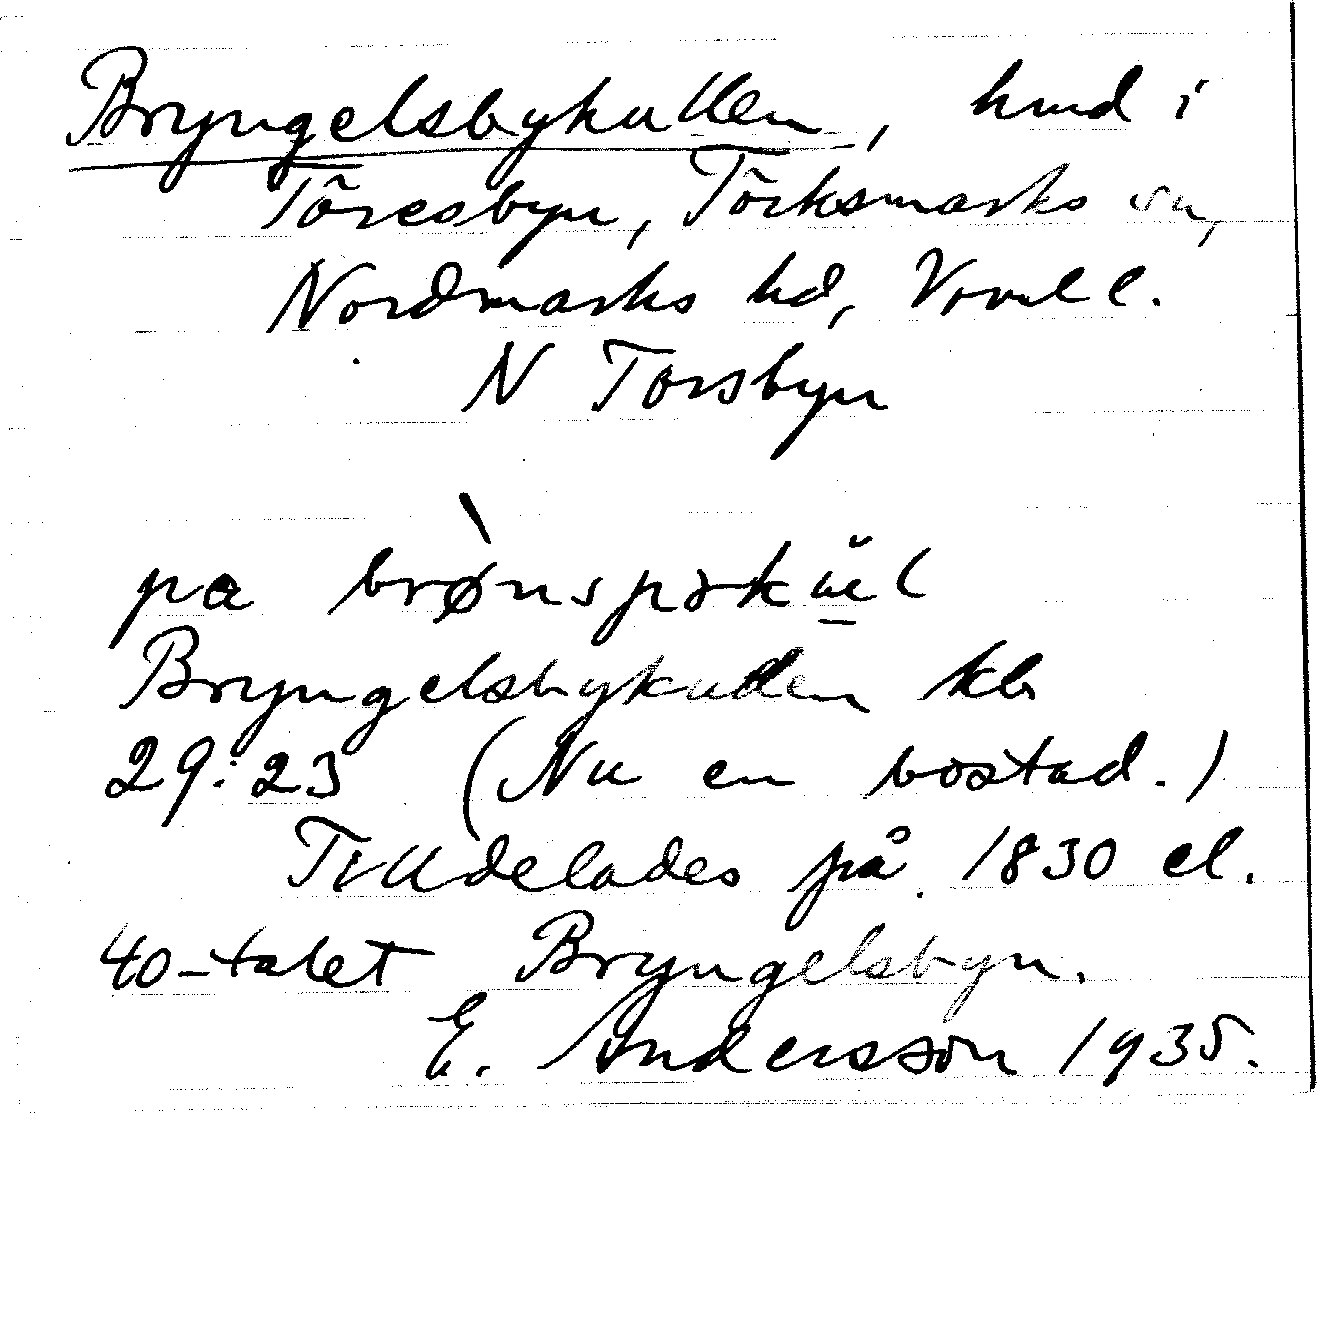 Bryngelsbykullen, hmd i
Töresbyn, Töcksmarks sn,
Nordmarks hd, Vrml l.
N Torsbyn
pa brønspøkúel
Bryngelsbykullen kb
29:23 (Nu en bostad.)
Tilldelades på 1830 el.
40-talet Bryngelsbyn.
E. Andersson 1935.